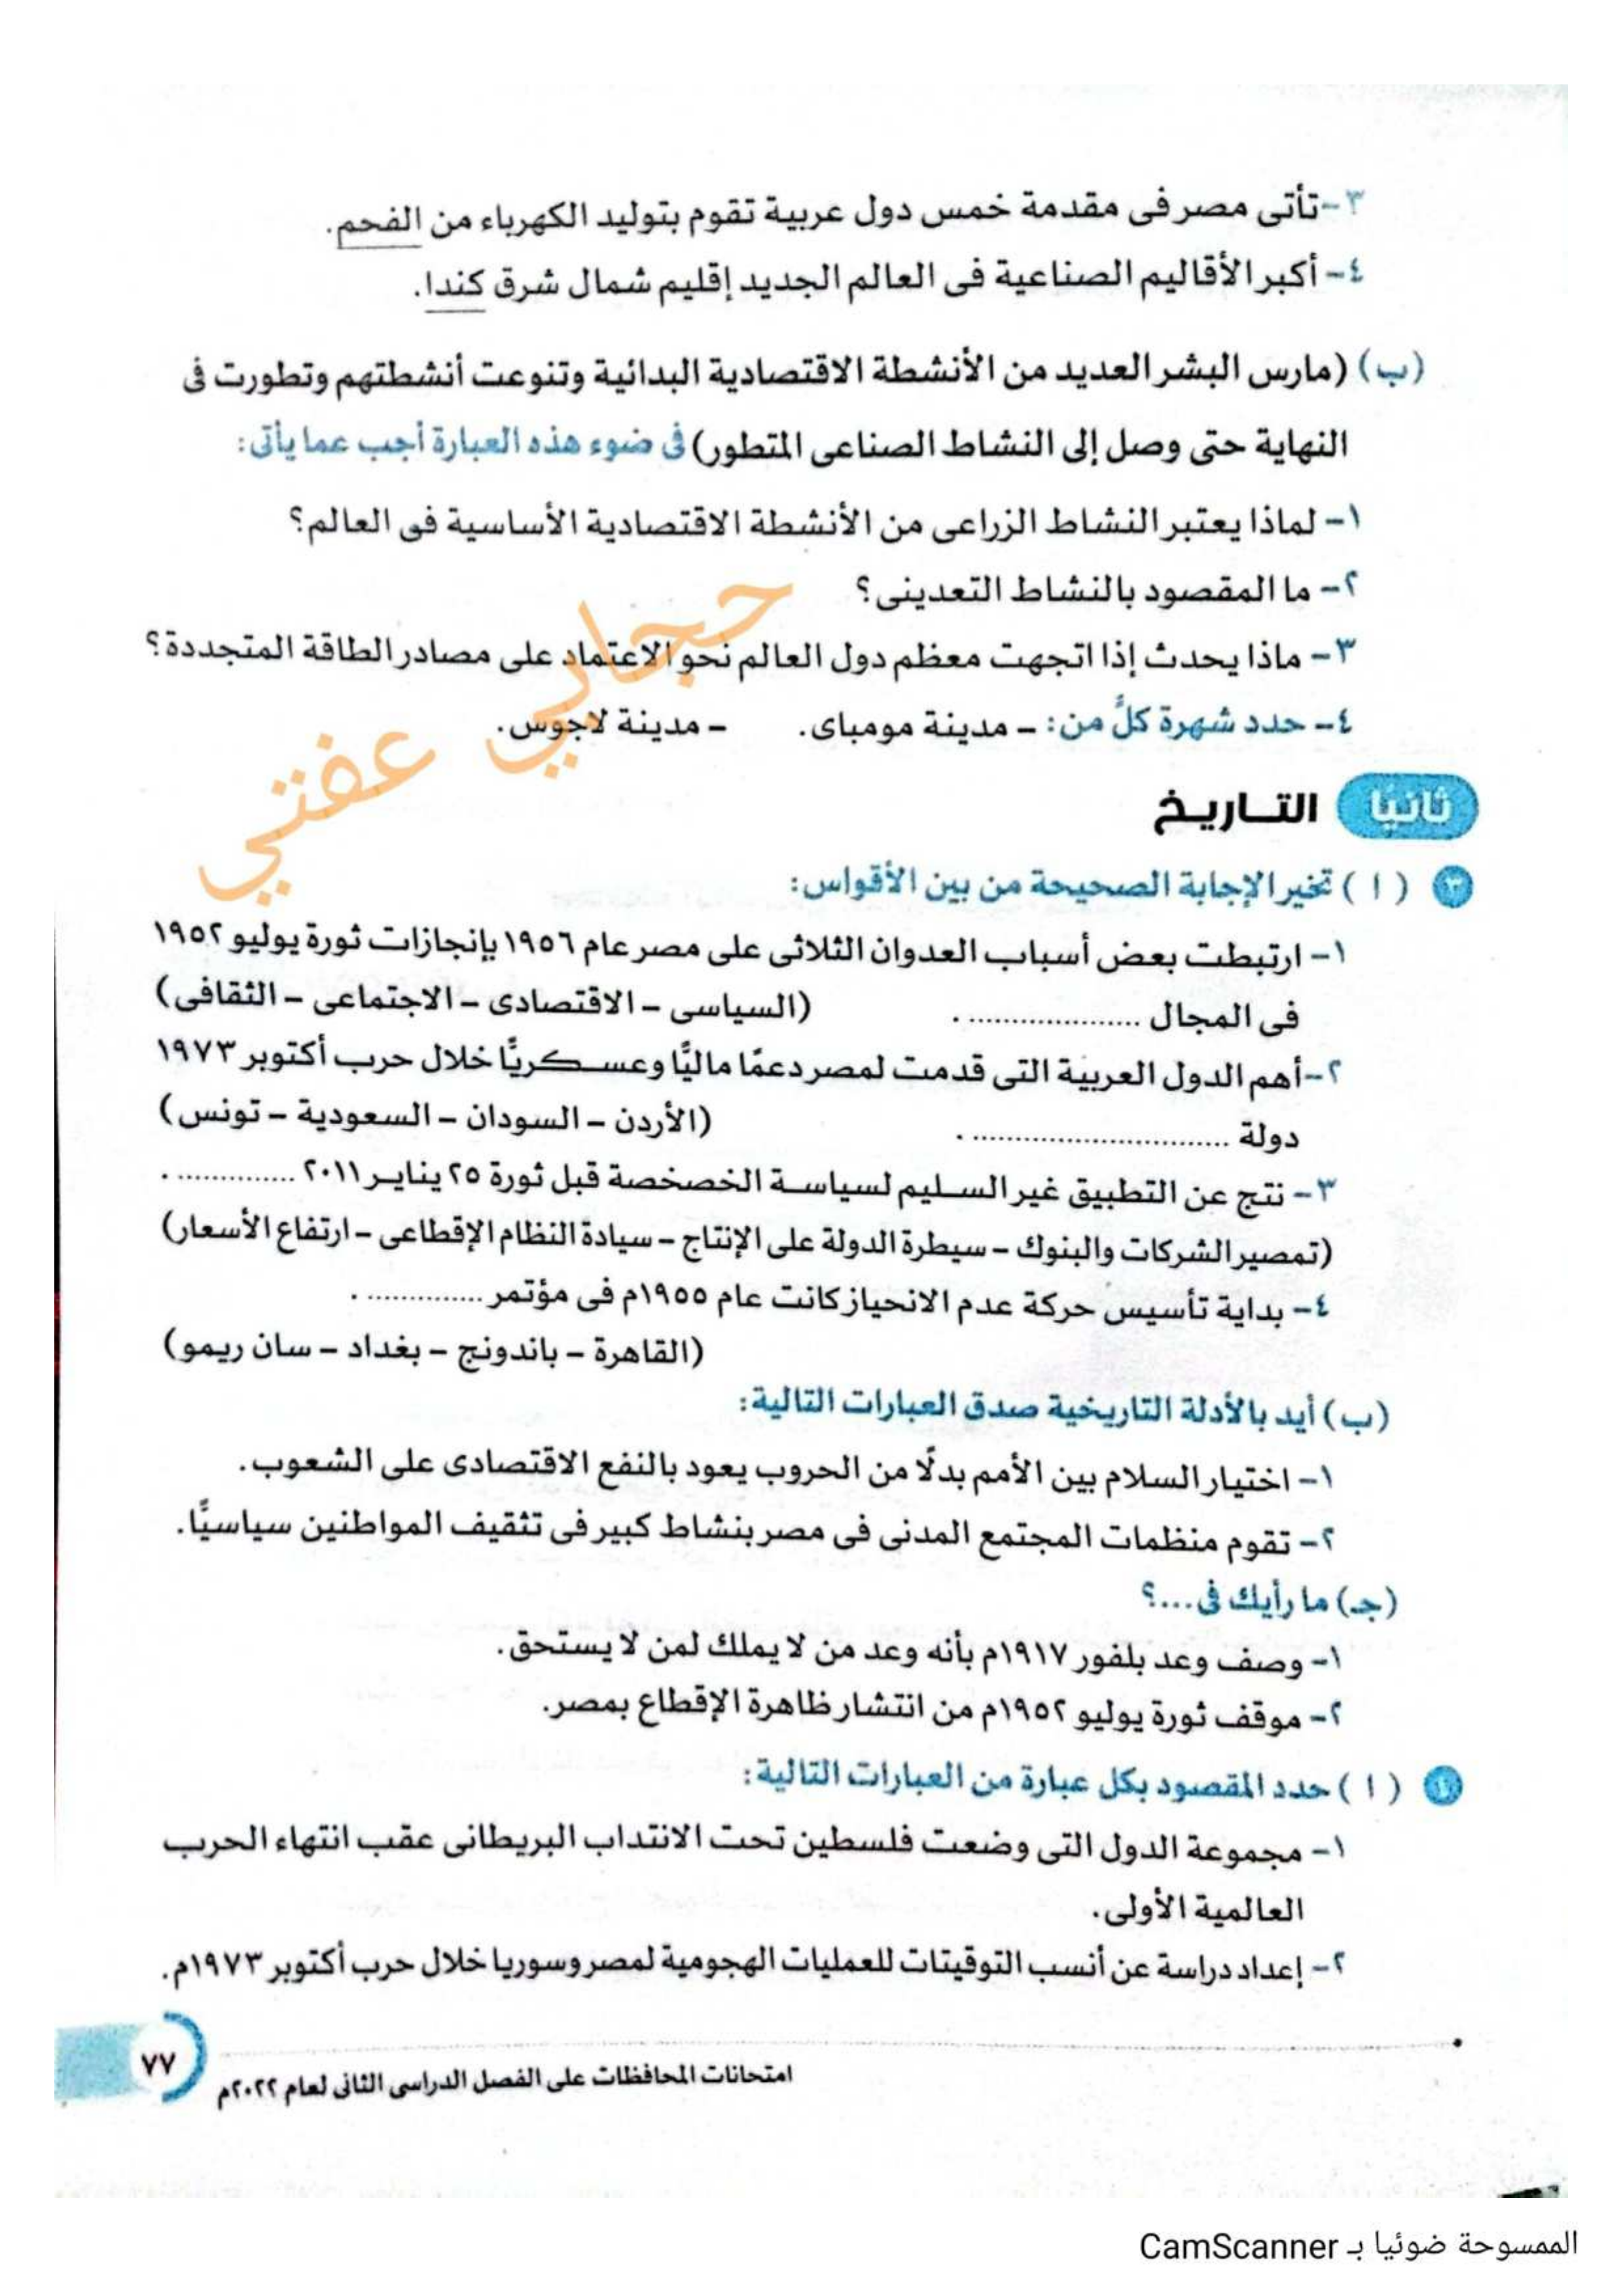 ٣- تأتى مصر فى مقدمة خمس دول عربية تقوم بتوليد الكهرباء من الفحم.
٤- أكبر الأقاليم الصناعية فى العالم الجديد إقليم شمال شرق كندا.
(ب) (مارس البشر العديد من الأنشطة الاقتصادية البدائية وتنوعت أنشطتهم وتطورت فى
النهاية حتى وصل إلى النشاط الصناعى المتطور) فى ضوء هذه العبارة أجب عما يأتى:
١- لماذا يعتبر النشاط الزراعى من الأنشطة الاقتصادية الأساسية فى العالم؟
٢- ما المقصود بالنشاط التعدينى؟
٣- ماذا يحدث إذا اتجهت معظم دول العالم نحو الاعتماد على مصادر الطاقة المتجددة؟
٤- حدد شهرة كلٌ من: - مدينة مومباى. - مدينة لاجوس.
حجابي عفتي
ثانيًا التــاريــخ
٣ ( ا ) تخير الإجابة الصحيحة من بين الأقواس:
١- ارتبطت بعض أسباب العدوان الثلاثى على مصر عام ١٩٥٦ بإنجازات ثورة يوليو ١٩٥٢
فى المجال .................... . (السياسى - الاقتصادى - الاجتماعى - الثقافى)
٢- أهم الدول العربية التى قدمت لمصر دعمًا ماليًّا وعسـكريًّا خلال حرب أكتوبر ١٩٧٣
دولة .............................. . (الأردن - السودان - السعودية - تونس)
٣- نتج عن التطبيق غير السـليم لسياسـة الخصخصة قبل ثورة ٢٥ ينايـر ٢٠١١ .............. .
(تمصير الشركات والبنوك - سيطرة الدولة على الإنتاج - سيادة النظام الإقطاعى - ارتفاع الأسعار)
٤- بداية تأسيس حركة عدم الانحياز كانت عام ١٩٥٥م فى مؤتمر .............. .
(القاهرة - باندونج - بغداد - سان ريمو)
(ب) أيد بالأدلة التاريخية صدق العبارات التالية:
١- اختيار السلام بين الأمم بدلًا من الحروب يعود بالنفع الاقتصادى على الشعوب.
٢- تقوم منظمات المجتمع المدنى فى مصر بنشاط كبير فى تثقيف المواطنين سياسيًّا.
(جـ) ما رأيك فى...؟
١- وصف وعد بلفور ١٩١٧م بأنه وعد من لا يملك لمن لا يستحق.
٢- موقف ثورة يوليو ١٩٥٢م من انتشار ظاهرة الإقطاع بمصر.
٤ ( ا ) حدد المقصود بكل عبارة من العبارات التالية:
١- مجموعة الدول التى وضعت فلسطين تحت الانتداب البريطانى عقب انتهاء الحرب
العالمية الأولى.
٢- إعداد دراسة عن أنسب التوقيتات للعمليات الهجومية لمصر وسوريا خلال حرب أكتوبر ١٩٧٣م.
امتحانات المحافظات على الفصل الدراسى الثانى لعام ٢٠٢٢م ٧٧
الممسوحة ضوئيا بـ CamScanner